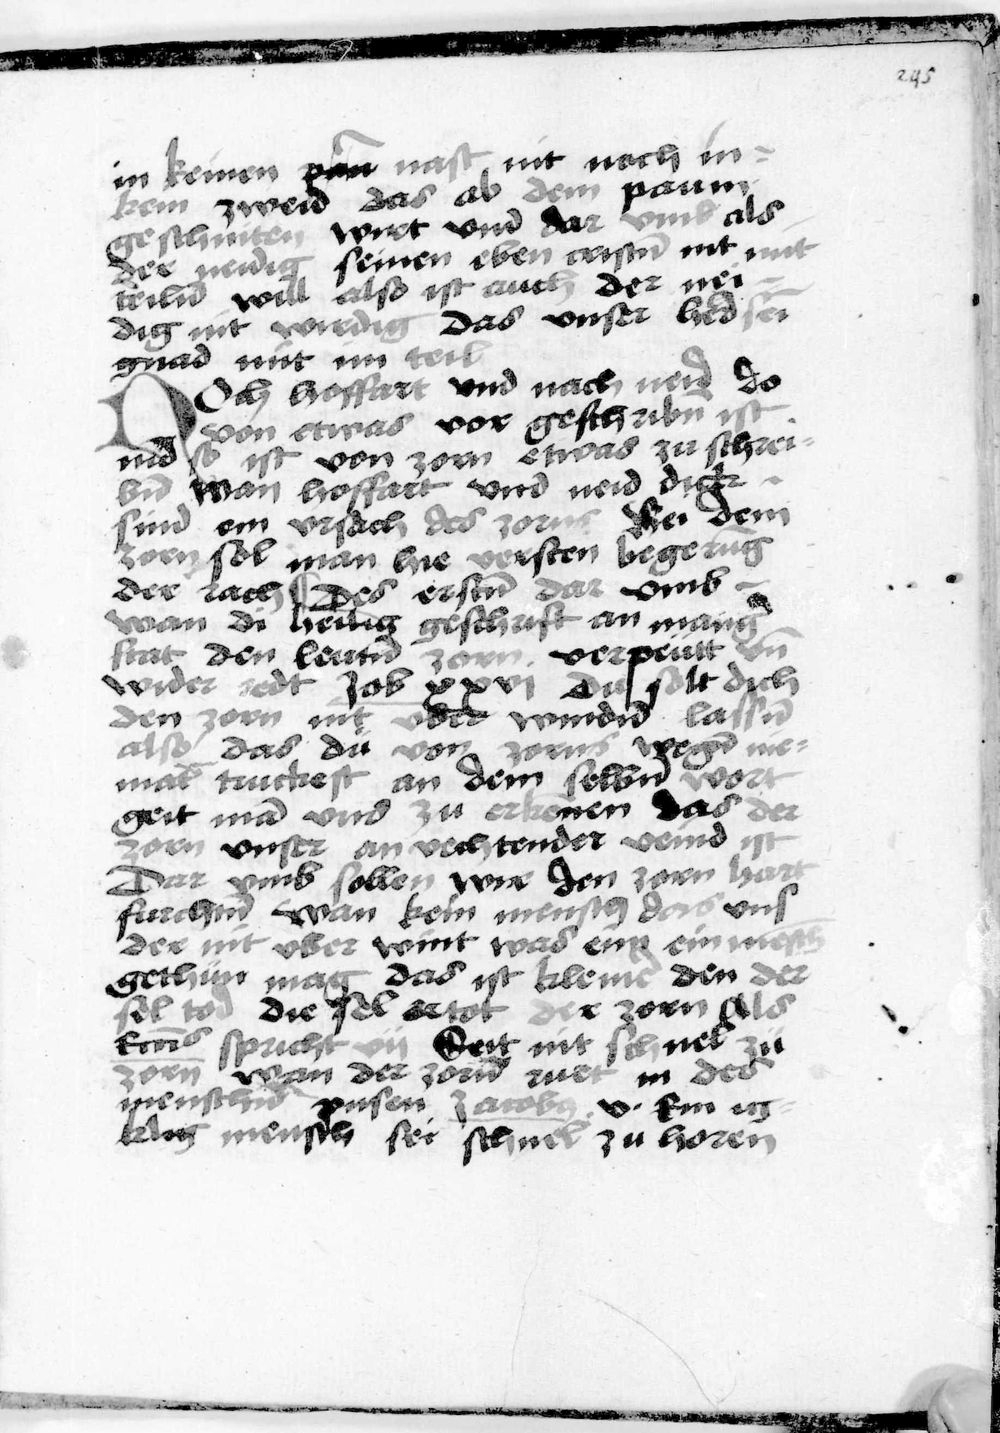 245
in keinen pau nast nit noch in-
kein zweid das ab dem paum
geschniten wirt vnd dar vmb als
der neidig seinen eben cristn̄ nit mit
teiln̄ will also ist auch der nei-
dig nit wirdig das vnser h̄ed sein
gnad mit im teil
Noch hoffart vnd nach neid do
von etwas vor geschribn̄ ist
nid so ist von zorn etwas zu schrei-
bn̄ wan hoffart vnd neid dick
sind ein vrsach des zorns Bei dem
zorn sol man hie versten begerūg
der rach Des erstn̄ dar vmb
wan di heilig geschrift an manḡ
stat den leutn̄ zorn verpeutt vn̄
wider redt Job xxxvi Du solt dich
den zorn nit vber windn̄ lassn̄
also das du von zorns wegn̄ nie-
mat̄ truckest an dem selbn̄ wort
geit mā vns zu erkenen das der
zorn vnser an vechtender veind ist
Dar vmb sollen wir den zorn hart
furchtn̄ wan kein mensch dars vns
der nit vber wint was ein mēsch
gethun mag das ist kleiner den der
sel tod die sel ertot der zorn Als
spricht vii Seit nit schnel zu
zorn wan der zorn ruet in des
menschn̄ pusen Jacob9 .v. Ein ig-
klig mensch sei schnel zu horen